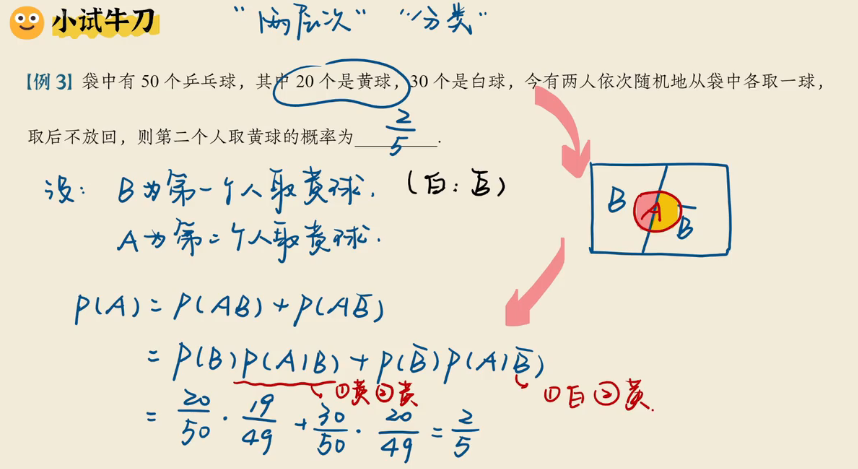 小试牛刀
“两层次” “分类”
【例 3】袋中有 50 个乒乓球，其中 20 个是黄球，30 个是白球，今有两人依次随机地从袋中各取一球，
取后不放回，则第二个人取黄球的概率为 2/5 .
设： B为第一个人取黄球. （白：B̅）
A为第二个人取黄球.
B A B̅
P(A) = P(AB) + P(AB̅)
= P(B)P(A|B) + P(B̅)P(A|B̅)
①黄②黄 ①白②黄.
= 20/50 · 19/49 + 30/50 · 20/49 = 2/5